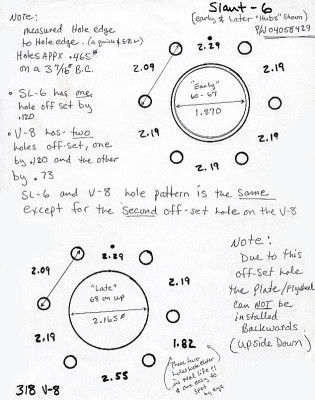 Slant-6
(early & Later "Hubs" Shown)
P/N 04058429
Note:
measured Hole edge
to Hole edge. (a quick & E-Z w)
Holes Appx .465"
on a 3 7/16" B.C.
• SL-6 has one
hole off set by
.120
• V-8 has two
holes off-set, one
by .120 and the other
by .73
2.29
2.09
2.19
"Early"
60-67
1.870
2.19
2.19
2.19
SL-6 and V-8 hole pattern is the Same
except for the Second off-set hole on the V-8
2.29
2.09
2.19
"Late"
68 on up
2.165ø
2.19
1.82
2.55
(These two
holes look closer
in real life !!
& are easy to
spot by eye
Note:
Due to this
off-set hole
the Plate/Flywheel
can NOT be
installed
Backwards
(Upside Down)
318 V-8